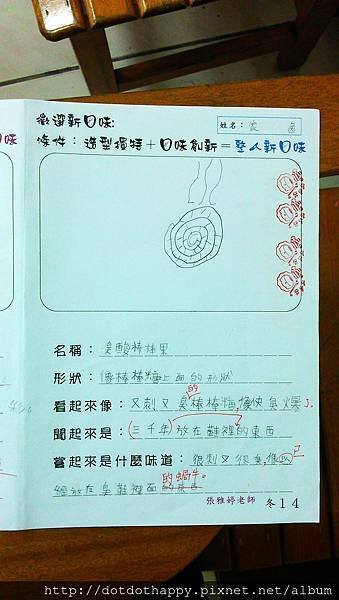 徵選新口味:
姓名：
條件：造型獨特＋口味創新＝整人新口味
名稱：臭酸棒棒果
形狀：像棒棒糖上面的形狀
看起來像：又刺又臭的棒棒糖,像快臭爆了。
聞起來是：(三千年)放在鞋裡的東西
嘗起來是什麼味道：很刺又很臭,像已
經放在臭鞋裡面的蝸牛。
張雅婷老師
冬14
http://dotdothappy.pixnet.net/album